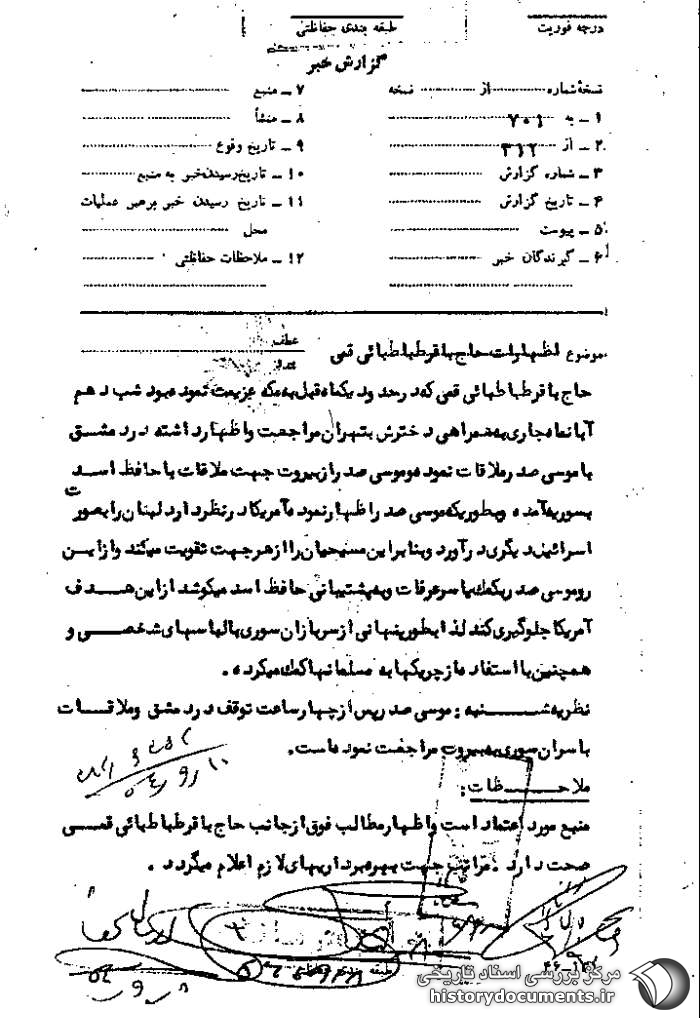 درجه فوریت
طبقه بندی حفاظتی
گزارش خبر
نسخهٔ شماره .......... از .......... نسخه
۱ ـ به ۷۰۱
۲ ـ از ۳۱۲
۳ ـ شماره گزارش
۴ ـ تاریخ گزارش
۵ ـ پیوست
۶ ـ گیرندگان خبر
۷ ـ منبع
۸ ـ منشأ
۹ ـ تاریخ وقوع
۱۰ ـ تاریخ رسیدن خبر به منبع
۱۱ ـ تاریخ رسیدن خبر برهبر عملیات
محل
۱۲ ـ ملاحظات حفاظتی
موضوع اظهارات حاج باقر طباطبائی قمی
عطف
حاج باقر طباطبائی قمی که در حدود یکماه قبل به مکه عزیمت نموده بود شب دهم
آبانماه جاری به همراهی دخترش بتهران مراجعت و اظهار داشته در دمشق
با موسی صدر ملاقات نموده و موسی صدر از بیروت جهت ملاقات با حافظ اسد
بسوریه آمده و بطوریکه موسی صدر اظهار نموده آمریکا در نظر دارد لبنان را بصورت
اسرائیل دیگری در آورد و بنابراین مسیحیان را از هر جهت تقویت میکند و از این
رو موسی صدر بکمک یاسر عرفات و به پشتیبانی حافظ اسد میکوشد از این هدف
آمریکا جلوگیری کند لذا بطور پنهانی از سربازان سوری با لباسهای شخصی و
همچنین با استفاده از چریکها به مسلمانها کمک میکرده .
نظریه شنبه : موسی صدر پس از چهار ساعت توقف در دمشق و ملاقات
با سران سوری به بیروت مراجعت نموده است.
ملاحظات :
منبع مورد اعتماد است و اظهار مطالب فوق از جانب حاج باقر طباطبائی قمی
صحت دارد . مراتب جهت بهره برداریهای لازم اعلام میگردد .
طبقه بندی حفاظتی
مرکز بررسی اسناد تاریخی
historydocuments.ir